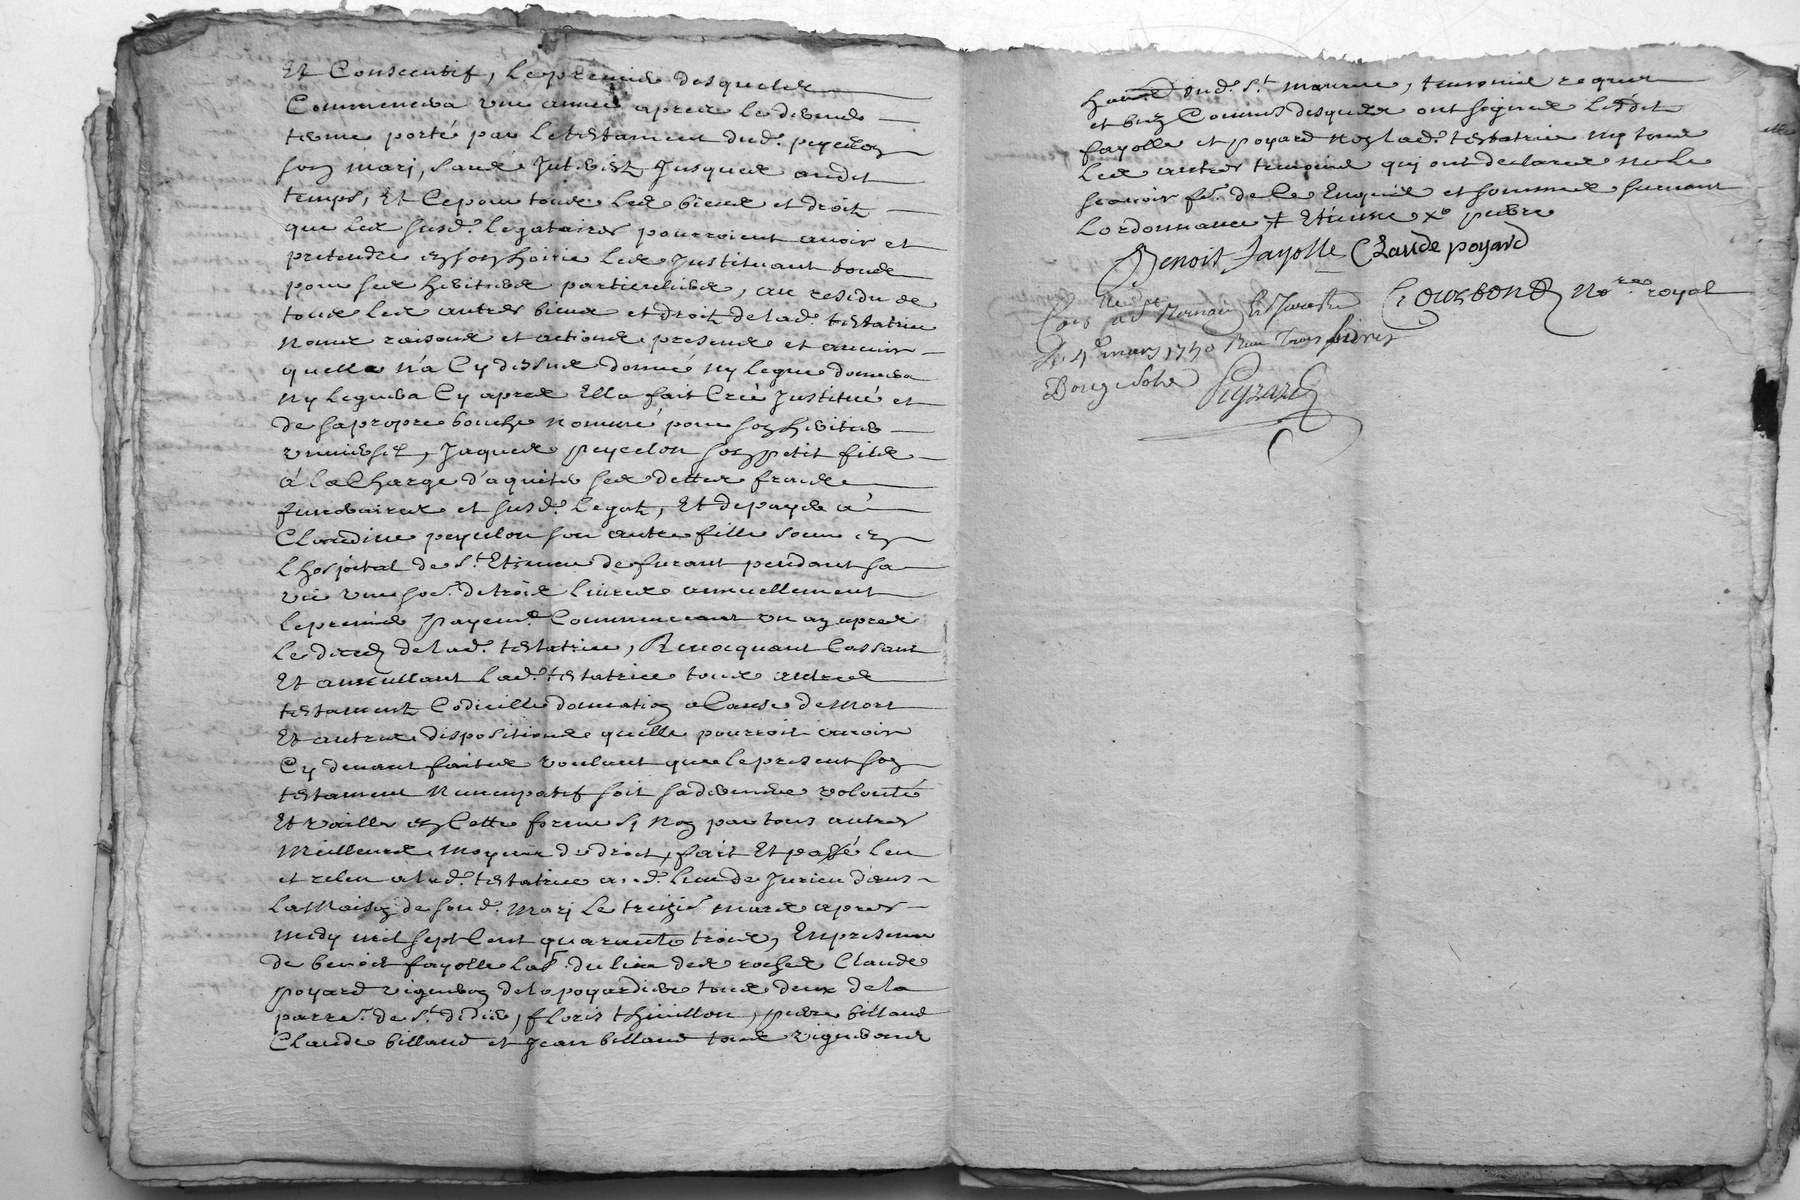 Et Consecutif, le premier desqueles
Commencera une année apres le dernier
terme porté par le testament dud. peyelon
son mari, sans Interest Jusques audit
temps, Et ce pour tous les biens et droit
que les susd. legataires pourroient avoir et
pretendre en son hoirie les Instituant tous
pour ses heritiers particuliers, au residu de
tous les autres biens et droitz de lad. testatrice
noms raisons et actions presens et avenir
quelle n'a Cy dessus donné ny legue donnera
ny leguera Cy apres Ella fait Creé Institué et
de sa propre bouche nommé pour son heritier
universel, Jaques peyelon son petit fils
à la Charge d'aquiter ses dettes fraix
funeraires et susd. legatz, Et de payer à
Claudine peyelon son autre fille soeur en
l'hospital de St. Etienne de furant pendant sa
vie une so.e de trois livres annuellement
le premier payem.t Commencant un an apres
le deced de lad. testatrice, Revocquant Cassant
Et annullant lad. testatrice tous autres
testamentz Codicille donnation a Cause de Mort
Et autres dispositions quelle pourroit avoir
Cy devant faites voulant que le present son
testament Nuncupatif soit sa derniere volonté
Et vaille en Cette forme si non par tous autres
Meilleurs Moyens de droit, fait Et passé leu
et releu a lad. testatrice a. d. lieu de Jurieu dans
la Maison de soud. Mari le treizie mars apres
midy mil sept Cent quarante trois, En presence
de benoit fayolle lab. du lieu des roches Claude
poyard vigneron de la poyardiere tous deux de la
parre. de St. didier, floris thivillon, pierre billaud
Claude billaud et Jean billaud tous vignerons
dud. St. maurice, temoins requis
et bien Connus desquels ont signer lesdit
fayolle et poyard non lad. testatrice ny tous
les autres temoins qui ont declarer ne le
scavoir f.e de ce Enquis et sommes suivant
lordonnance Etienne pierre
Benoit fayolle Claude poyard
Coursbond No.re royal
mars 1743 Reçu Trois livres
Douze Sols